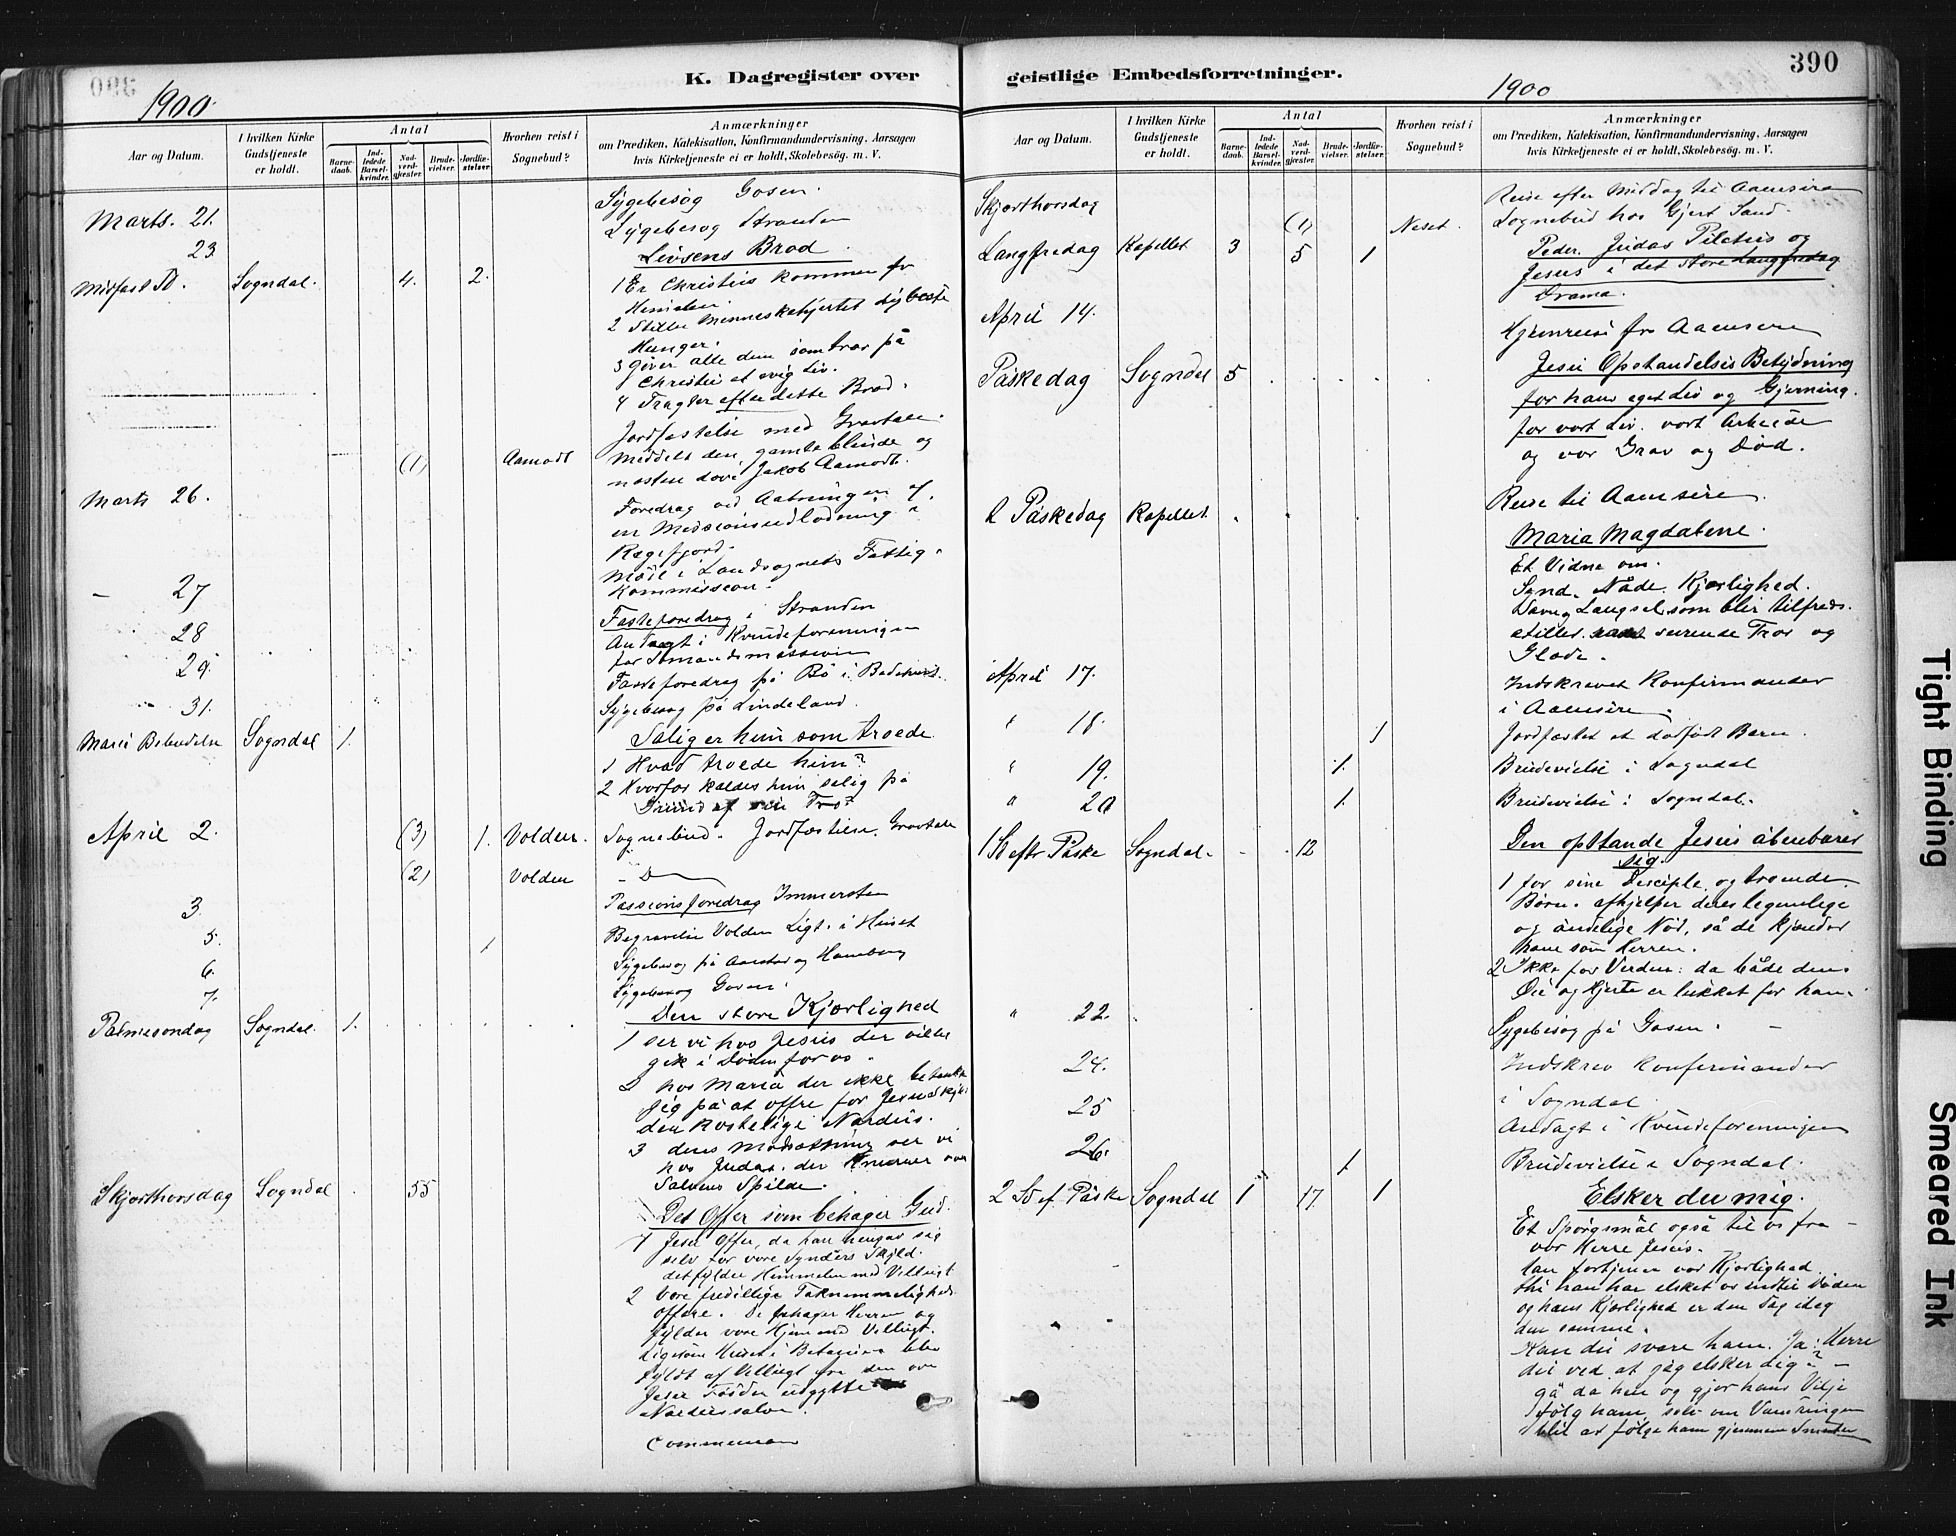 390
K. Dagregister over
1900
Aar og Datum.
I hvilken Kirke Gudstjeneste er holdt.
Antal
Barne-daab.
Ind-ledede Barsel-kvinder.
Nad-verd-gjæster.
Brude-vielser.
Jordfæ-stelser.
Hvorhen reist i Sognebud?
Anmærkninger
om Prædiken, Katekisation, Konfirmandundervisning, Aarsagen
hvis Kirketjeneste ei er holdt, Skolebesøg. m. V.
Sygebesøg Gosen.
Marts. 21. Sygebesøg Stranden
23 Livsens Brød
Midfast Sd. Sogndal. 4. 2. 1 Er Christus kommen fr
Himlen.
2 Stiller Menneskehjertet dybeste
Hunger.
3 Giver alle dem som tror på
Christus et evig Liv.
4 Tragter efter dette Brød.
Jordfæstelse med Gravtale.
(1) Aamodt Meddelt den gamle blinde og
næsten døve Jakob Aamodt.
Marts 26. Foredrag ved Aabningen af
en Missionsudlodning i
Rægefjord.
- 27 Møde i Landsognets Fattig-
Kommission.
28 Fasteforedrag i Stranden
Andagt i Kvindeforeningen
29. for Sømandsmissionen
Fasteforedrag på Bø i Bedehuset.
31. Sygebesøg på Lindeland.
Mariæ Bebudelse Sogndal 1. Salig er hun som troede
1 Hvad troede hun?
2 Hvorfor kaldes hun salig på
Grund af sin Tro?
April 2. (3) 1. Volden. Sognebud. Jordfæstelse. Gravtale
(2) Volden - D -
3. Passionsforedrag Immerstein
5. 1 Begravelse Volden Ligt. i Huset
6. Sygebesøg på Aarstad og Hauneberg
7. Sygebesøg Gosen.
Palmesøndag Sogndal. 1. Den store Kjærlighed
1 ser vi hos Jesus der villig
gik i Døden for os.
2 hos Maria der ikke betænkte
sig på at offre for Jesu Skyld
den kostelige Nardus.
3 dens Modsætning ser vi
hos Judas. der knurrer over
Salvens Spilde.
Skjærthorsdag Sogndal 55 Det Offer som behager Gud.
1 Jesu Offer, da han hengav sig
selv for vore Synders Skyld.
det fylder Himmelen med Vellugt
2 Vore frivillige Taknemmeligheds
offere. De behager Herren og
fylder vore Hjem med Vellugt.
Ligesom Huset i Betania blev
fyldt af Vellugt fra den over
Jesu Fødder udgydte
Nardussalve.
geistlige Embedsforretninger.
390
1900
Aar og Datum.
I hvilken Kirke Gudstjeneste er holdt.
Antal
Barne-daab.
Ind-ledede Barsel-kvinder.
Nad-verd-gjæster.
Brude-vielser.
Jordfæ-stelser.
Hvorhen reist i Sognebud?
Anmærkninger
om Prædiken, Katekisation, Konfirmandundervisning, Aarsagen
hvis Kirketjeneste ei er holdt, Skolebesøg. m. V.
Skjærthorsdag Reise efter Middag til Aamsire
(1) Neset. Sognebud hos Gjert Sand.
Langfredag Kapellet 3 5 1 Peder. Judas Pilatus og
Jesus i det store Langfredag
Drama.
April 14. Hjemreise fr Aamsire
Påskedag Sogndal 5 Jesu Opstandelses Betydning
for hans eget Liv og Gjerning.
for vort Liv. vort Arbeide
og vor Grav og Død.
Reise til Aamsire.
2 Påskedag Kapellet Maria Magdalene.
Et Vidne om.
Synd. Nåde. Kjærlighed.
Savn og Længsel som blir tilfreds-
stillet. seirende Tro og
Glæde.
April 17. Indskrevet Konfirmander
i Aamsire.
" 18. 1 Jordfæstet et dødfødt Barn.
" 19. 1. Brudevielse i Sogndal
" 20 1. Brudevielse i Sogndal.
1 Sd eftr Påske Sogndal. 12 Den opstandne Jesus åbenbarer
sig.
1 for sine Disciple, og troende
Børn. afhjelper deres legemlige
og åndelige Nød, så de kjender
ham som Herren.
2 Ikke for Verden: da både dens
Øie og Hjerte er lukket for ham.
" 22. Sygebesøg på Gosen. -
24. Indskrev Konfirmander
i Sogndal
25 Andagt i Kvindeforeningen
26. 1. Brudevielse i Sogndal.
2 Sd ef. Påske Sogndal 1 17. 1 Elsker du mig.
Et Spørgsmål også til os fra -
vor Herre Jesus.
Han fortjener vor Kjærlighed
thi han har elsket os indtil Døden
og hans Kjærlighed er den Dag idag
den samme.
Kan du svare ham. Ja: Herre
du ved at jeg elsker dig? -
gå da hen og gjør hans Vilje
følg ham, selv om Vandringen
blir at følge ham gjennem Smerter
Tight Binding
Smeared Ink